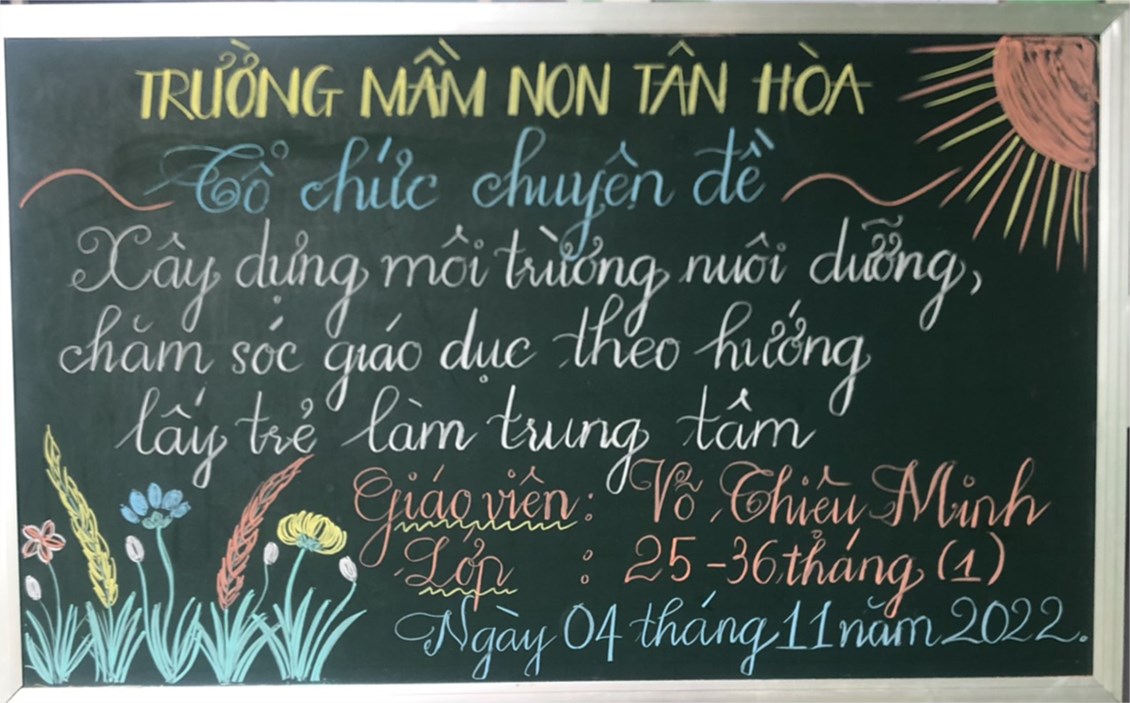 TRƯỜNG MẦM NON TÂN HÒA
Tổ chức chuyên đề
Xây dựng môi trường nuôi dưỡng,
chăm sóc giáo dục theo hướng
lấy trẻ làm trung tâm
Giáo viên: Võ Thiếu Minh
Lớp : 25-36 tháng (1)
Ngày 04 tháng 11 năm 2022.